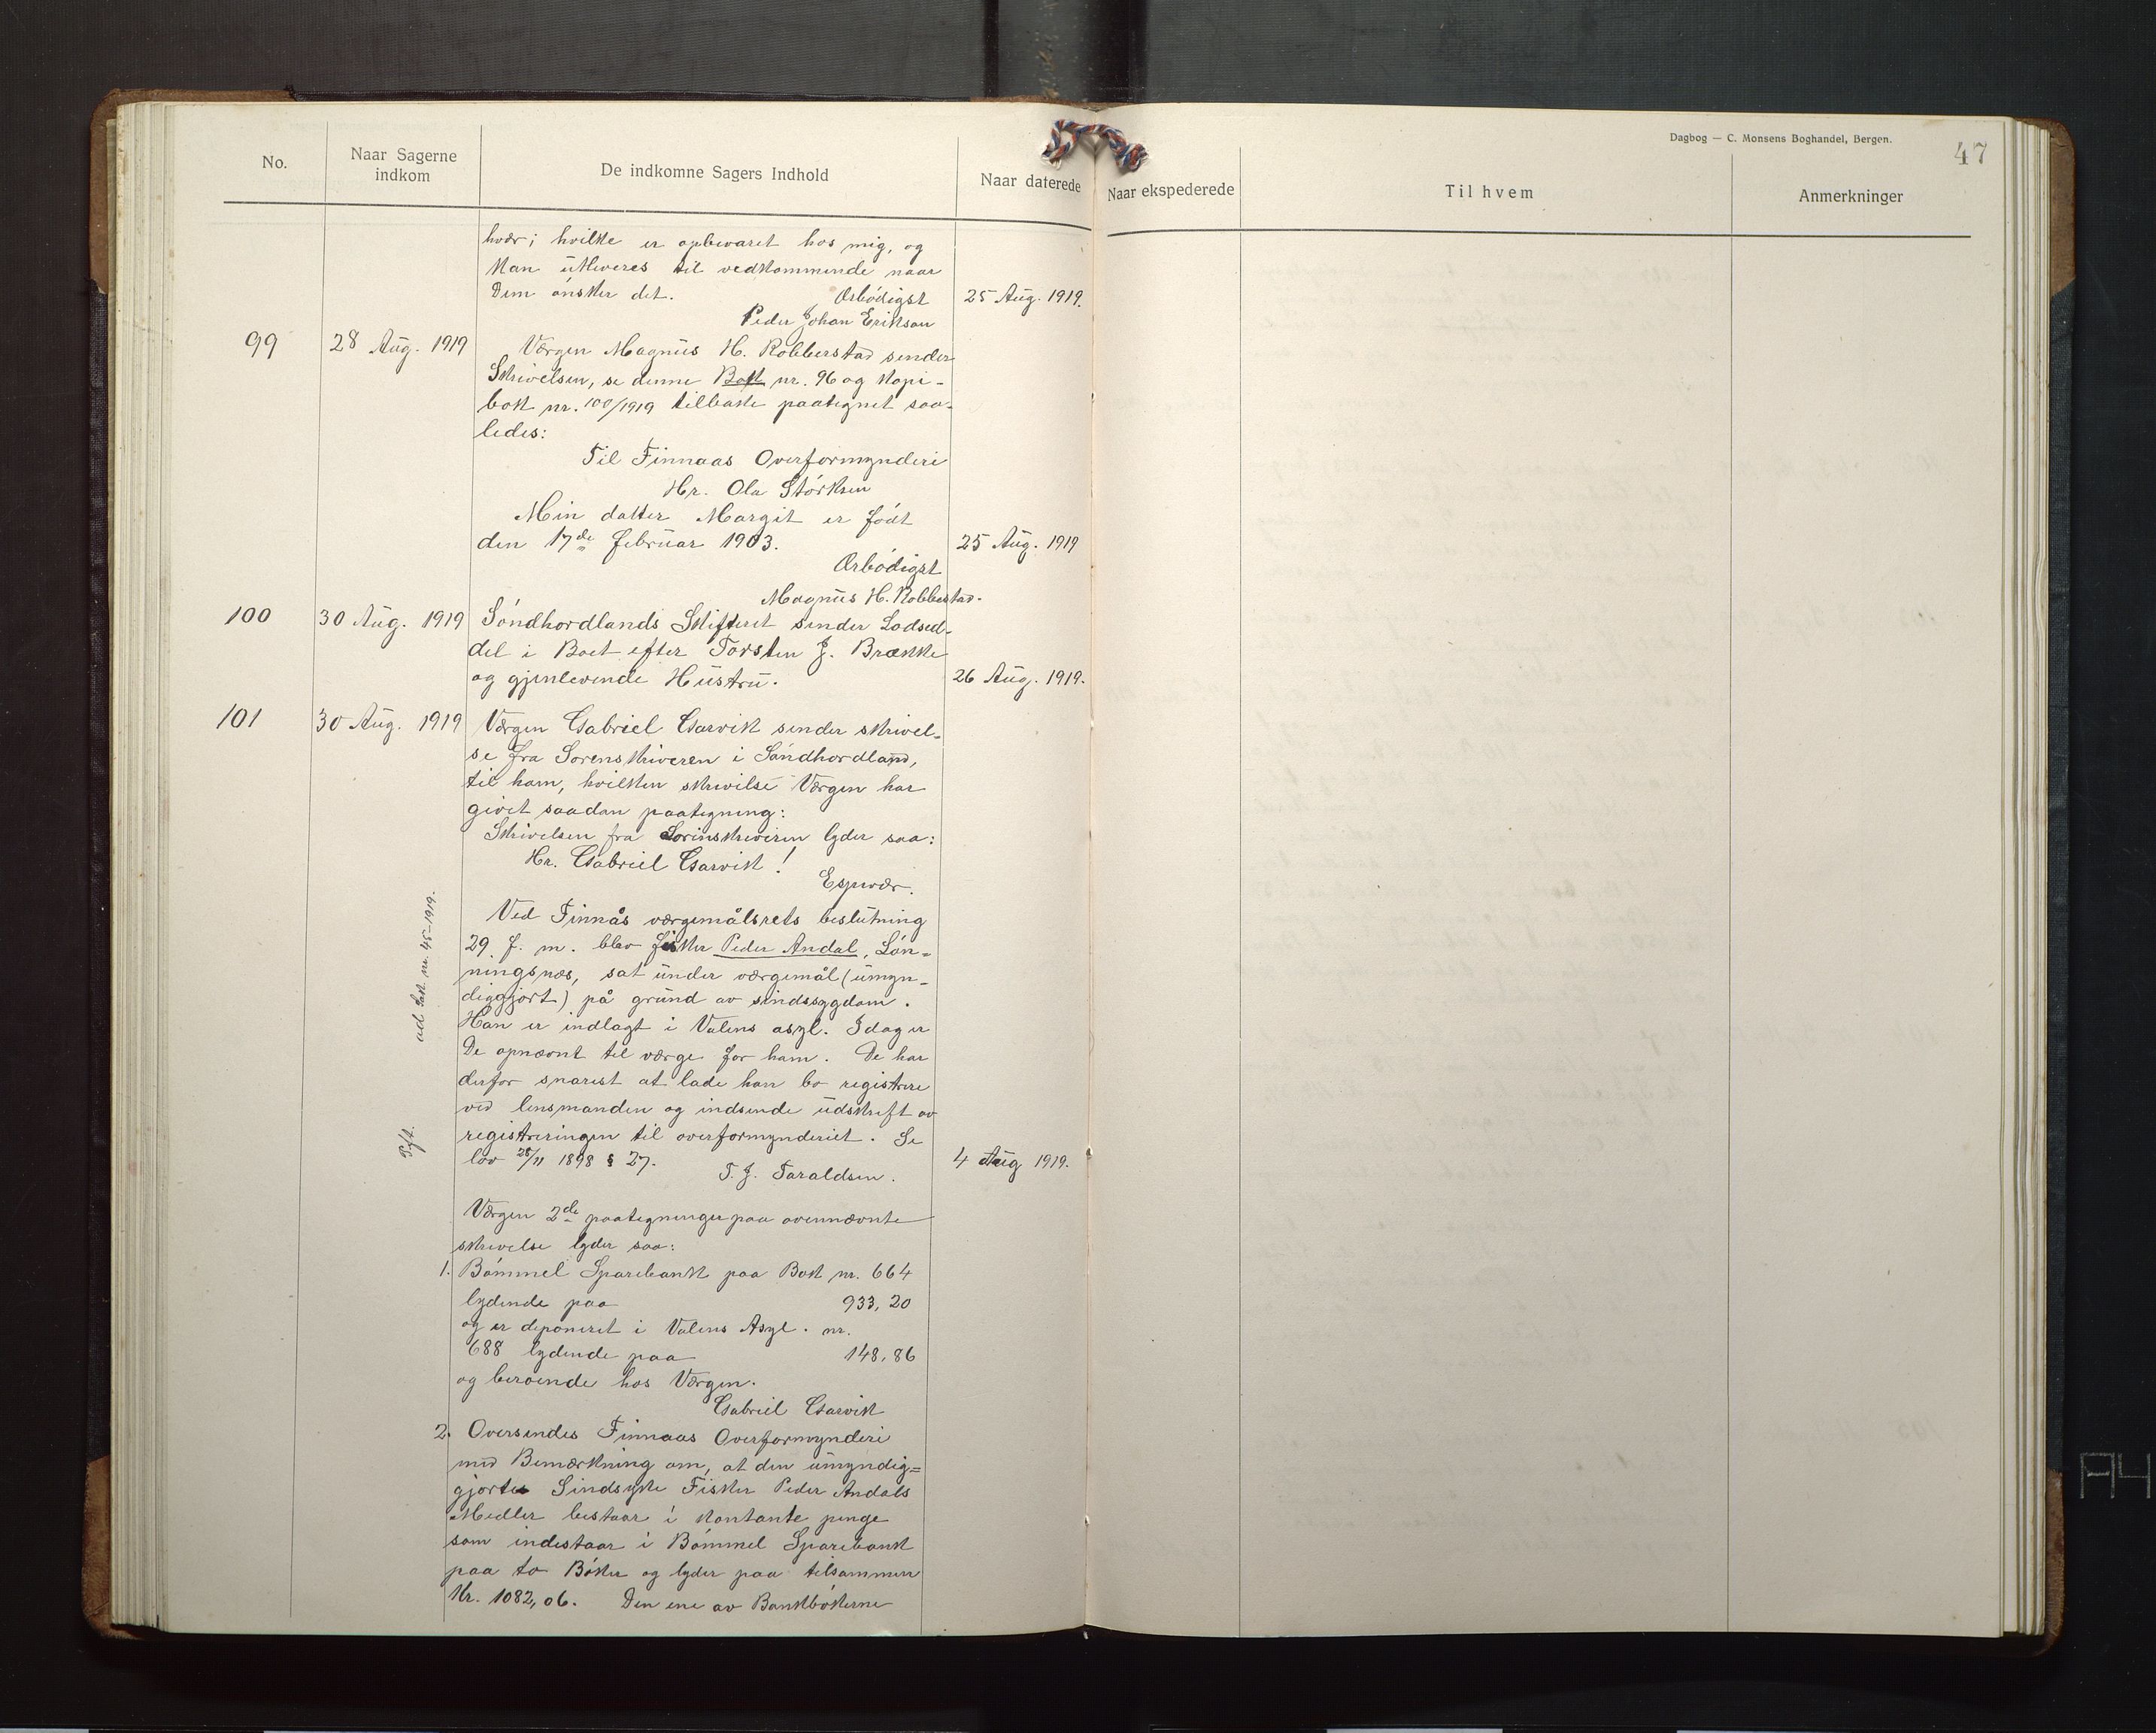 Dagbog — C. Monsens Boghandel, Bergen.
47
No.
Naar Sagerne
indkom
De indkomne Sagers Indhold
Naar daterede
Naar ekspederede
Til hvem
Anmerkninger
hvær; hvilke er opbevaret hos mig, og
kan utleveres til vedkommende naar
Dem ønsker det. Ærbødigst 25 Aug. 1919.
Peder Johan Eriksen
99 28 Aug. 1919 Værgen Magnus H. Robberstad sender
Skrivelsen, se denne Bok nr. 96 og Kopi-
bok nr. 100/1919 tilbake paategnet saa-
ledes:
Til Finnaas Overformynderi
Hr. Ola Størksen
Min datter Margit er født
den 17de februar 1903. 25 Aug. 1919
Ærbødigst
Magnus H. Robberstad.
100 30 Aug. 1919 Søndhordlands Skifteret sender Lodsed-
del i Boet efter Torsten J. Brække
og gjenlevende Hustru. 26 Aug. 1919.
101 30 Aug. 1919 Værgen Gabriel Garvik sender skrivel-
se fra Sorenskriveren i Søndhordland,
til ham, hvilken skrivelse Værgen har
givet saadan paategning:
Skrivelsen fra Sorenskriveren lyder saa:
Hr. Gabriel Garvik!
Espevær.
Ved Finnås værgemålsrets beslutning
29. f. m. blev fisker Peder Andal, Løn-
ningsnæs, sat under værgemål (umyn-
diggjort) på grund av sindssygdom.
Han er indlagt i Valens asyl. Idag er
De opnævnt til værge for ham. De har
derfor snarest at lade han bo registrere
ved lensmanden og indsende udskrift av
registreringen til overformynderiet. Se
lov 28/11 1898 § 27. 4 Aug 1919.
T. J. Taraldsen.
ad Sak nr. 45-1919.
Værgen 2de paategninger paa ovennævnte
skrivelse lyder saa:
1. Bømmel Sparebank paa Bok nr. 664
lydende paa 933,20
og er deponeret i Valens Asyl. nr.
688 lydende paa 148,86
og beroende hos Værgen.
Gabriel Garvik
2. Oversendes Finnaas Overformynderi
med Bemærkning om, at den umyndig=
gjorte Sindsyke Fisker Peder Andals
Medler bestaar i kontante penge
som indestaar i Bømmel Sparebank
paa to Bøker og lyder paa tilsammen
Kr. 1082,06. Den ene av Bankbøkerne